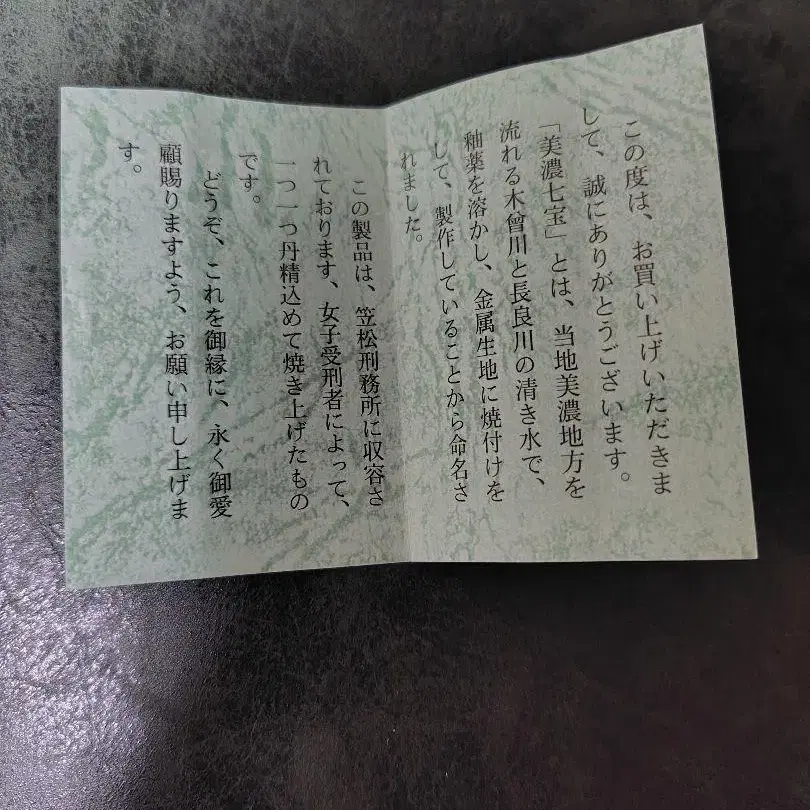 この度は、お買い上げいただきま
して、誠にありがとうございます。
「美濃七宝」とは、当地美濃地方を
流れる木曾川と長良川の清き水で、
釉薬を溶かし、金属生地に焼付けを
して、製作していることから命名さ
れました。
この製品は、笠松刑務所に収容さ
れております、女子受刑者によって、
一つ一つ丹精込めて焼き上げたもの
です。
どうぞ、これを御縁に、永く御愛
顧賜りますよう、お願い申し上げま
す。